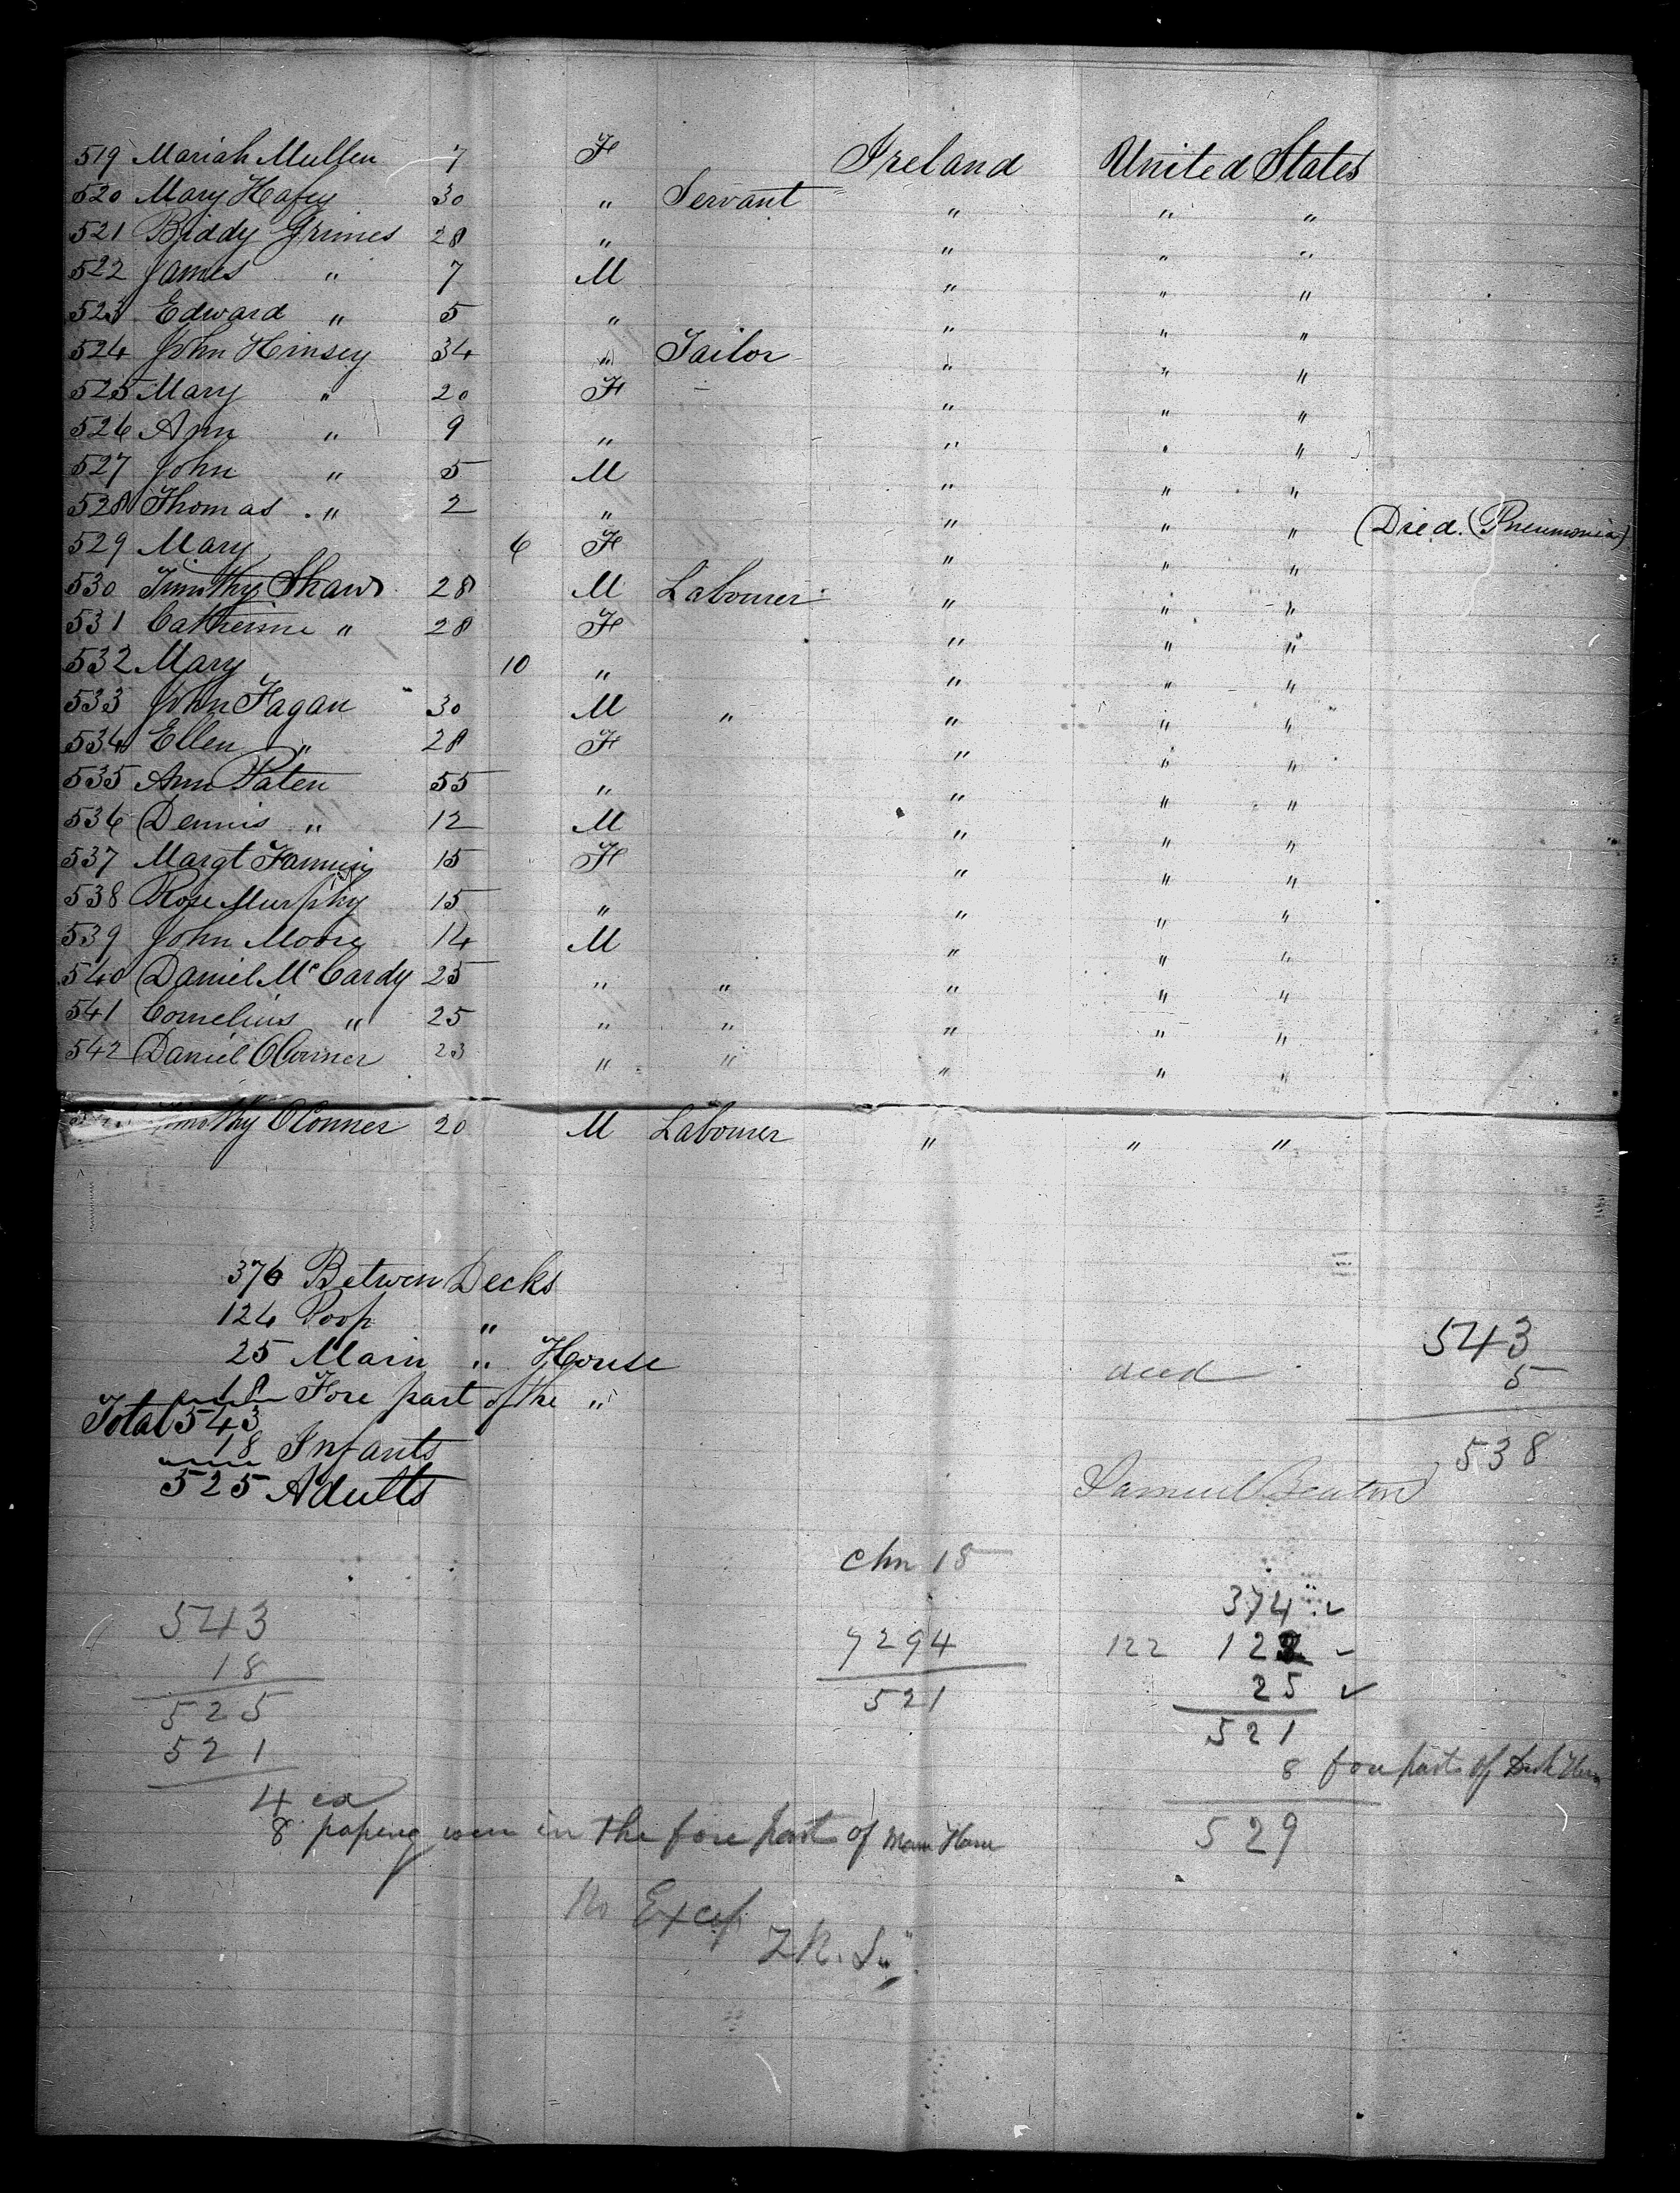 519 Mariah Mullen 7 F Ireland United States
520 Mary Hafey 30 " Servant " " "
521 Biddy Grimes 28 " " " "
522 James " 7 M " " "
523 Edward " 5 " " " "
524 John Hinsey 34 " Tailor " " "
525 Mary " 20 F " " "
526 Ann " 9 " " " "
527 John " 5 M " " "
528 Thomas " 2 " " " " Died. (Pneumonia)
529 Mary 6 F " " "
530 Timothy Shaw 28 M Labourer " " "
531 Catherine " 28 F " " "
532 Mary 10 " " " "
533 John Fagan 30 M " " " "
534 Ellen " 28 F " " "
535 Ann Paten 55 " " " "
536 Dennis " 12 M " " "
537 Margt Fannin 15 F " " "
538 Rose Murphy 15 " " " "
539 John Moore 14 M " " "
540 Daniel McCardy 25 " " " " "
541 Cornelius " 25 " " " " "
542 Daniel OConner 23 " " " " "
Timothy OConner 20 M Labourer " " "
376 Betwen Decks
124 Poop "
25 Main " House
18 Fore part of the "
Total 543
18 Infants
525 Adults
543
died 5
538
Samuel Benton
Chn 18
543
18
525
521
4
9294
521
374
122 123
25
521
8 fore part of Deck
529
8 in the fore part of
No Excep